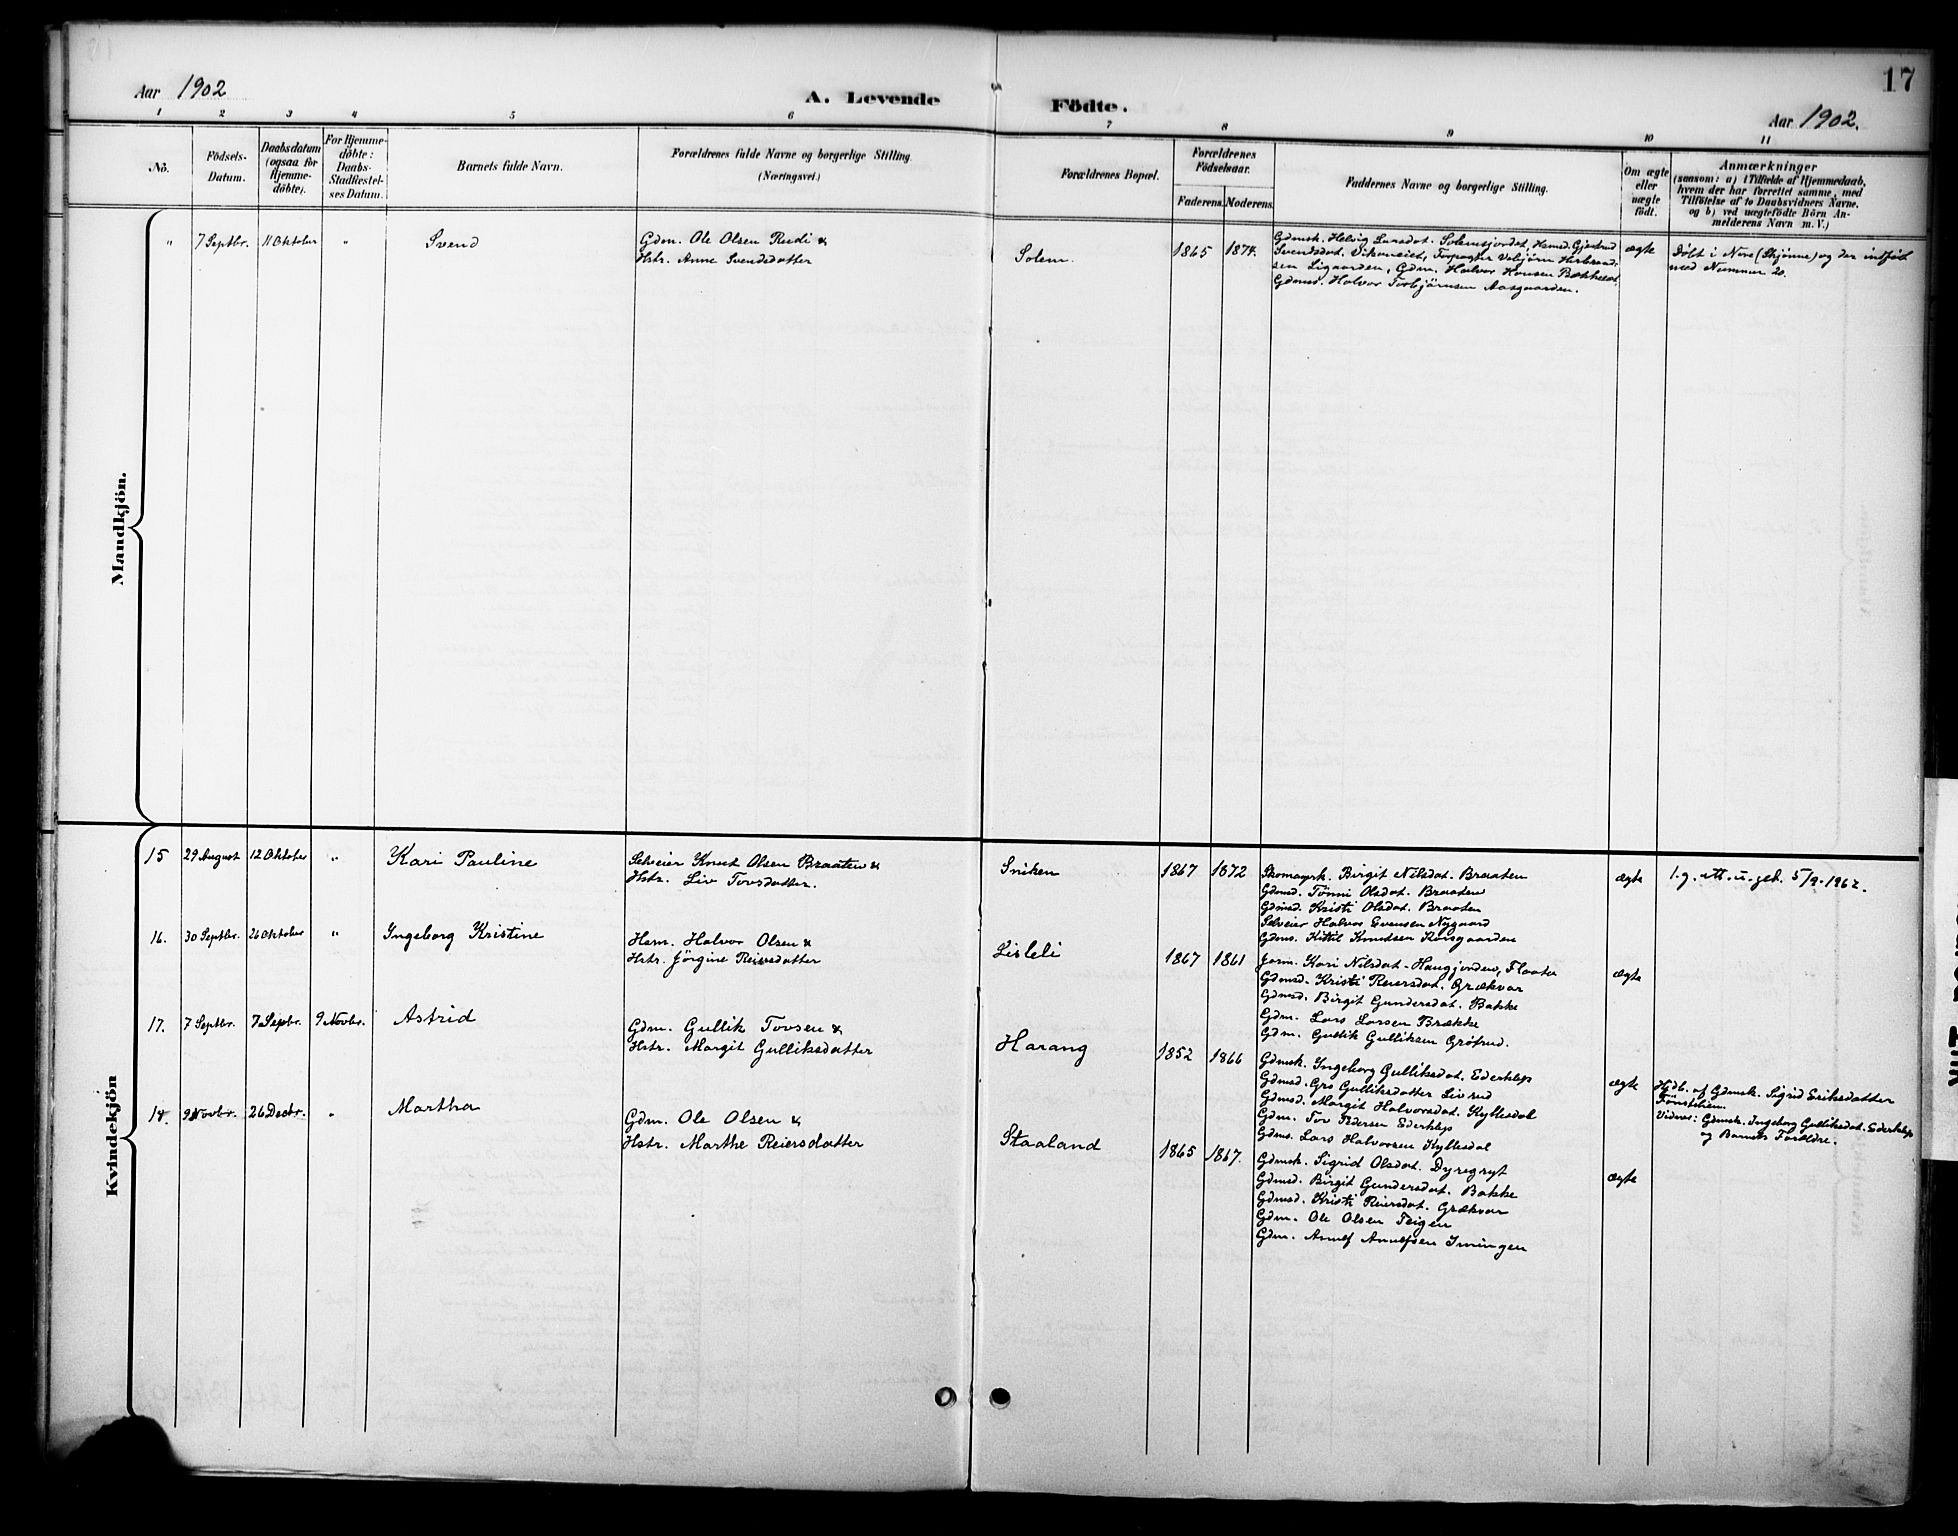 17
Aar 1902
A. Levende Födte.
Aar 1902.
1 2 3 4 5 6 7 8 9 10 11
No.
Födsels-
Datum.
Daabsdatum
(ogsaa for
Hjemme-
döbte).
For Hjemme-
döbte:
Daabs-
Stadfestel-
ses Datum.
Barnets fulde Navn.
Forældrenes fulde Navne og borgerlige Stilling.
(Næringsvei.)
Forældrenes Bopæl.
Forældrenes
Födselsaar.
Faderens. Moderens.
Faddernes Navne og borgerlige Stilling.
Om ægte
eller
uægte
födt.
Anmærkninger
(saasom: a) i Tilfælde af Hjemmedaab,
hvem der har forrettet samme, med
Tilföielse af to Daabsvidners Navne,
og b) ved uægtefödte Börn An-
melderens Navn m. V.)
Mandkjön.
" 7 Septbr. 11 Oktober " Svend
Gdm. Ole Olsen Rudi &
Hstr. Anne Svendsdatter
Solem. 1865 1874.
Gdmsk. Helvig Larsdat. Solemsjordet, Hsmd. Gjertrud
Svendsdat. Vikaneiet, Forpagter Vebjörn Herbrand-
sen Ligaarden, Gdm. Halvor Hansen Bækkeset.
Gdmsd. Halvor Torbjörnsen Aasgaarden.
ægte
Döbt i Nore (Skjönne) og der indfört
med Nummer 20.
Kvindekjön
15 29 August 12 Oktober " Kari Pauline
Selveier Knut Olsen Braaten &
Hstr. Liv Torsdatter.
Sniken 1867 1872
Skomagrk. Birgit Nilsdat. Braaten
Gdmsd. Tönni Olsdat. Braaten
Gdmsd. Kristi Olsdat. Braaten
Selveier Halvor Evensen Nygaard
Gdms. Kittil Knudsen Korsgaarden
ægte
16. 30 Septbr. 26 Oktober " Ingeborg Kristine
Hsm. Halvor Olsen &
Hstr. Jörgine Reiersdatter
Lisleli 1867 1861
Jorm. Kari Nilsdat. Haugjordene, Flaata
Gdmsd. Kristi Reiersdat. Grækvar
Gdmsd. Birgit Gundersdat. Bakke
Gdm. Lars Larsen Brække
Gdm. Gullik Gulliksen Gröfrud.
ægte
17. 7 Septbr. 7 Sepbr. 9 Novbr. Astrid
Gdm. Gullik Torsen &
Hstr. Margit Gulliksdatter
Harang 1852 1866
Gdmsk. Ingeborg Gulliksdat. Ederklep
Gdmsd. Gro Gulliksdatter Livrud
Gdmsd. Margit Halvorsdat. Kyllesdal
Gdm. Tor Pedersen Ederklep
Gdms. Lars Halvorsen Kyllesdal
ægte
Hjdb. af Gdmsk. Sigrid Eriksdatter
Vidner: Gdmsk. Ingeborg Gulliksdat. Ederklep
og Barnets Forældre.
18. 9 Novbr. 26 Decbr. " Martha
Gdm. Ole Olsen &
Hstr. Marthe Reiersdatter
Staaland 1865 1867.
Gdmsk. Sigrid Olsdat. Dyregryt
Gdmsd. Birgit Gundersdat. Bakke
Gdmsd. Kristi Reiersdat. Grækvar
Gdm. Ole Olsen Teigen
Gdm. Arnulf Arnulfsen Imingen
ægte